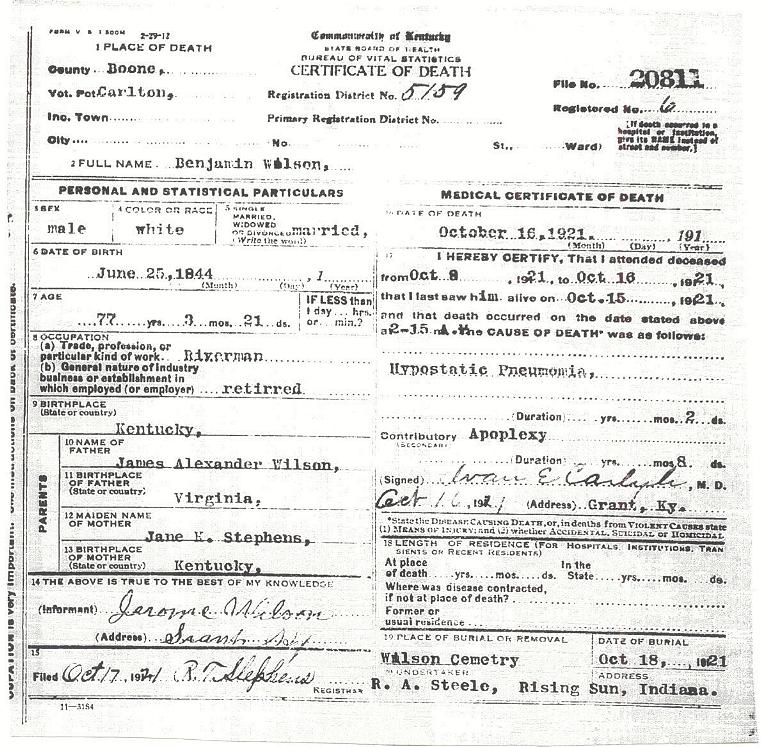 FORM V S 1 500M 2-29-12
1 PLACE OF DEATH
County Boone,
Vot. Pct Carlton,
Inc. Town
City
No.
St.,
Ward)
Commonwealth of Kentucky
STATE BOARD OF HEALTH
BUREAU OF VITAL STATISTICS
CERTIFICATE OF DEATH
Registration District No. 5159
Primary Registration District No.
File No. 20811
Registered No. 6
[If death occurred in a
hospital or institution,
give its NAME instead of
street and number.]
2 FULL NAME Benjamin Wilson,
PERSONAL AND STATISTICAL PARTICULARS
3 SEX
male
4 COLOR OR RACE
white
5 SINGLE
MARRIED,
WIDOWED
OR DIVORCED married,
(Write the word)
6 DATE OF BIRTH
June 25, 1844 , 1
(Month) (Day) (Year)
7 AGE
77 yrs. 3 mos. 21 ds.
IF LESS than
1 day ... hrs.
or ... min.?
8 OCCUPATION
(a) Trade, profession, or
particular kind of work Riverman
(b) General nature of industry
business or establishment in
which employed (or employer) retirred
9 BIRTHPLACE
(State or country)
Kentucky,
PARENTS
10 NAME OF
FATHER
James Alexander Wilson,
11 BIRTHPLACE
OF FATHER
(State or country)
Virginia,
12 MAIDEN NAME
OF MOTHER
Jane E. Stephens,
13 BIRTHPLACE
OF MOTHER
(State or country) Kentucky,
14 THE ABOVE IS TRUE TO THE BEST OF MY KNOWLEDGE
(Informant) Jerome Wilson
(Address) Grant Ky
15
Filed Oct 17, 1921 R. T. Stephens
REGISTRAR
11-3184
MEDICAL CERTIFICATE OF DEATH
16 DATE OF DEATH
October 16, 1921. , 191
(Month) (Day) (Year)
17 I HEREBY CERTIFY, That I attended deceased
from Oct 8 , 1921, to Oct 16 1921
that I last saw him alive on Oct. 15 , 1921.
and that death occurred on the date stated above
at 2-15 A.M. The CAUSE OF DEATH* was as follows:
Hypostatic Pneumonia,
(Duration) yrs. mos. 2 ds.
Contributory Apoplexy
(SECONDARY)
(Duration) yrs. mos. 8. ds.
(Signed) , M. D.
Oct 16, 1921 (Address) Grant, Ky.
*State the DISEASE CAUSING DEATH, or, in deaths from VIOLENT CAUSES state
(1) MEANS OF INJURY; and (2) whether ACCIDENTAL, SUICIDAL or HOMICIDAL
18 LENGTH OF RESIDENCE (FOR HOSPITALS, INSTITUTIONS, TRAN
SIENTS OR RECENT RESIDENTS)
At place In the
of death yrs. mos. ds. State yrs. mos. ds.
Where was disease contracted,
if not at place of death?
Former or
usual residence
19 PLACE OF BURIAL OR REMOVAL
Wilson Cemetry
DATE OF BURIAL
Oct 18, 1921
20 UNDERTAKER
ADDRESS
R. A. Steele, Rising Sun, Indiana.